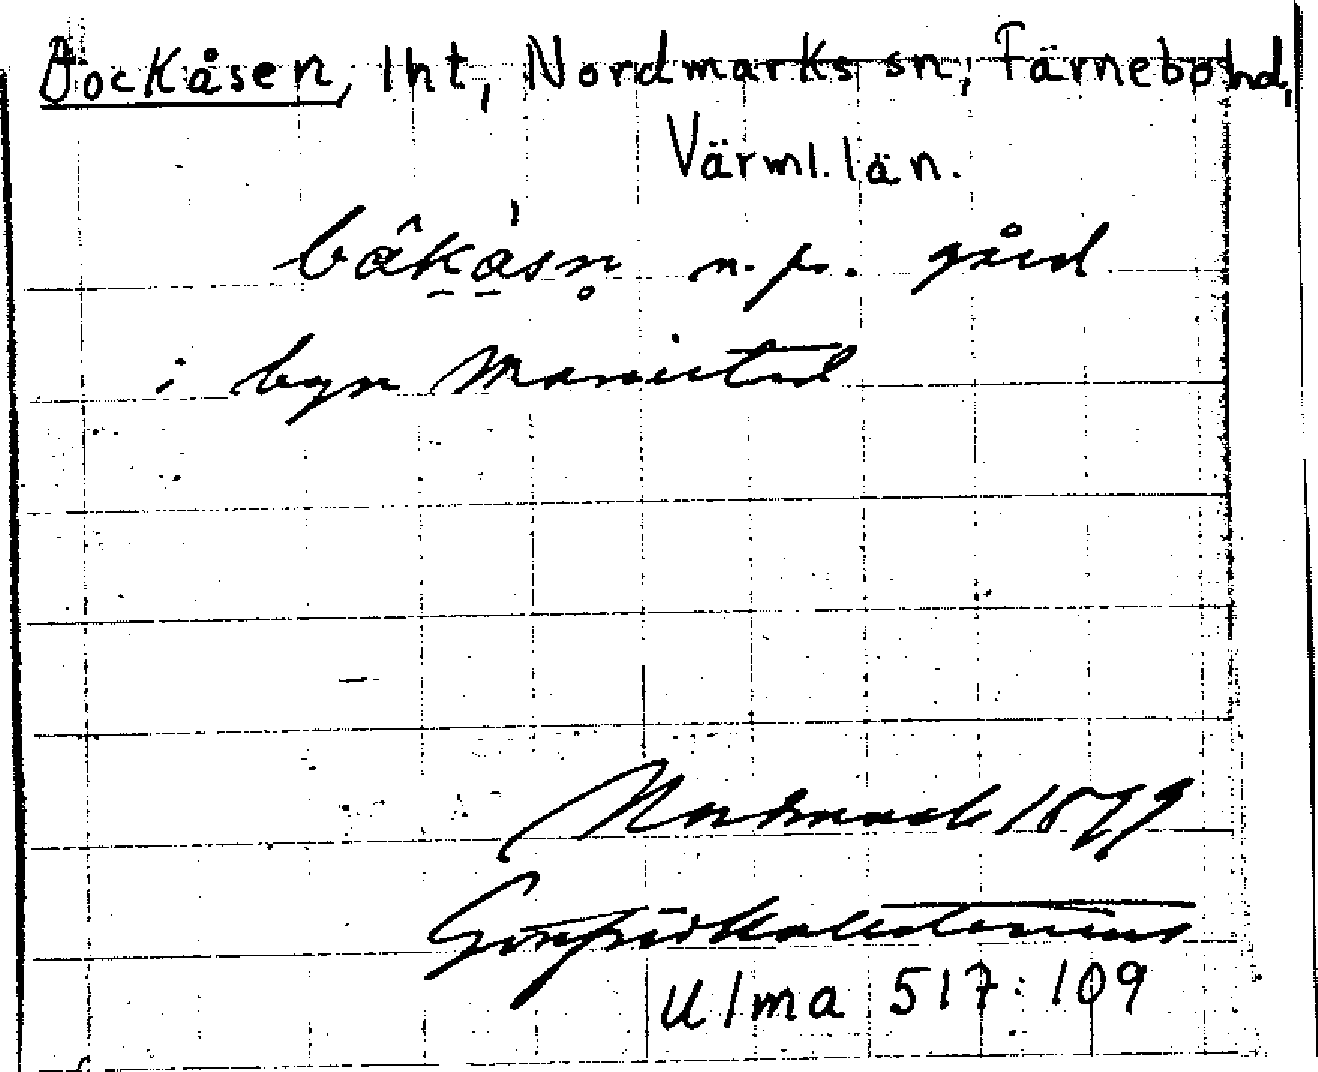 Bockåsen, lht, Nordmarks sn, Färnebo hd,
Värml. län.
båkåsn n. pr. gård
i byn
Nordmark 1879
Gottfrid Kallstenius
Ulma 517:109